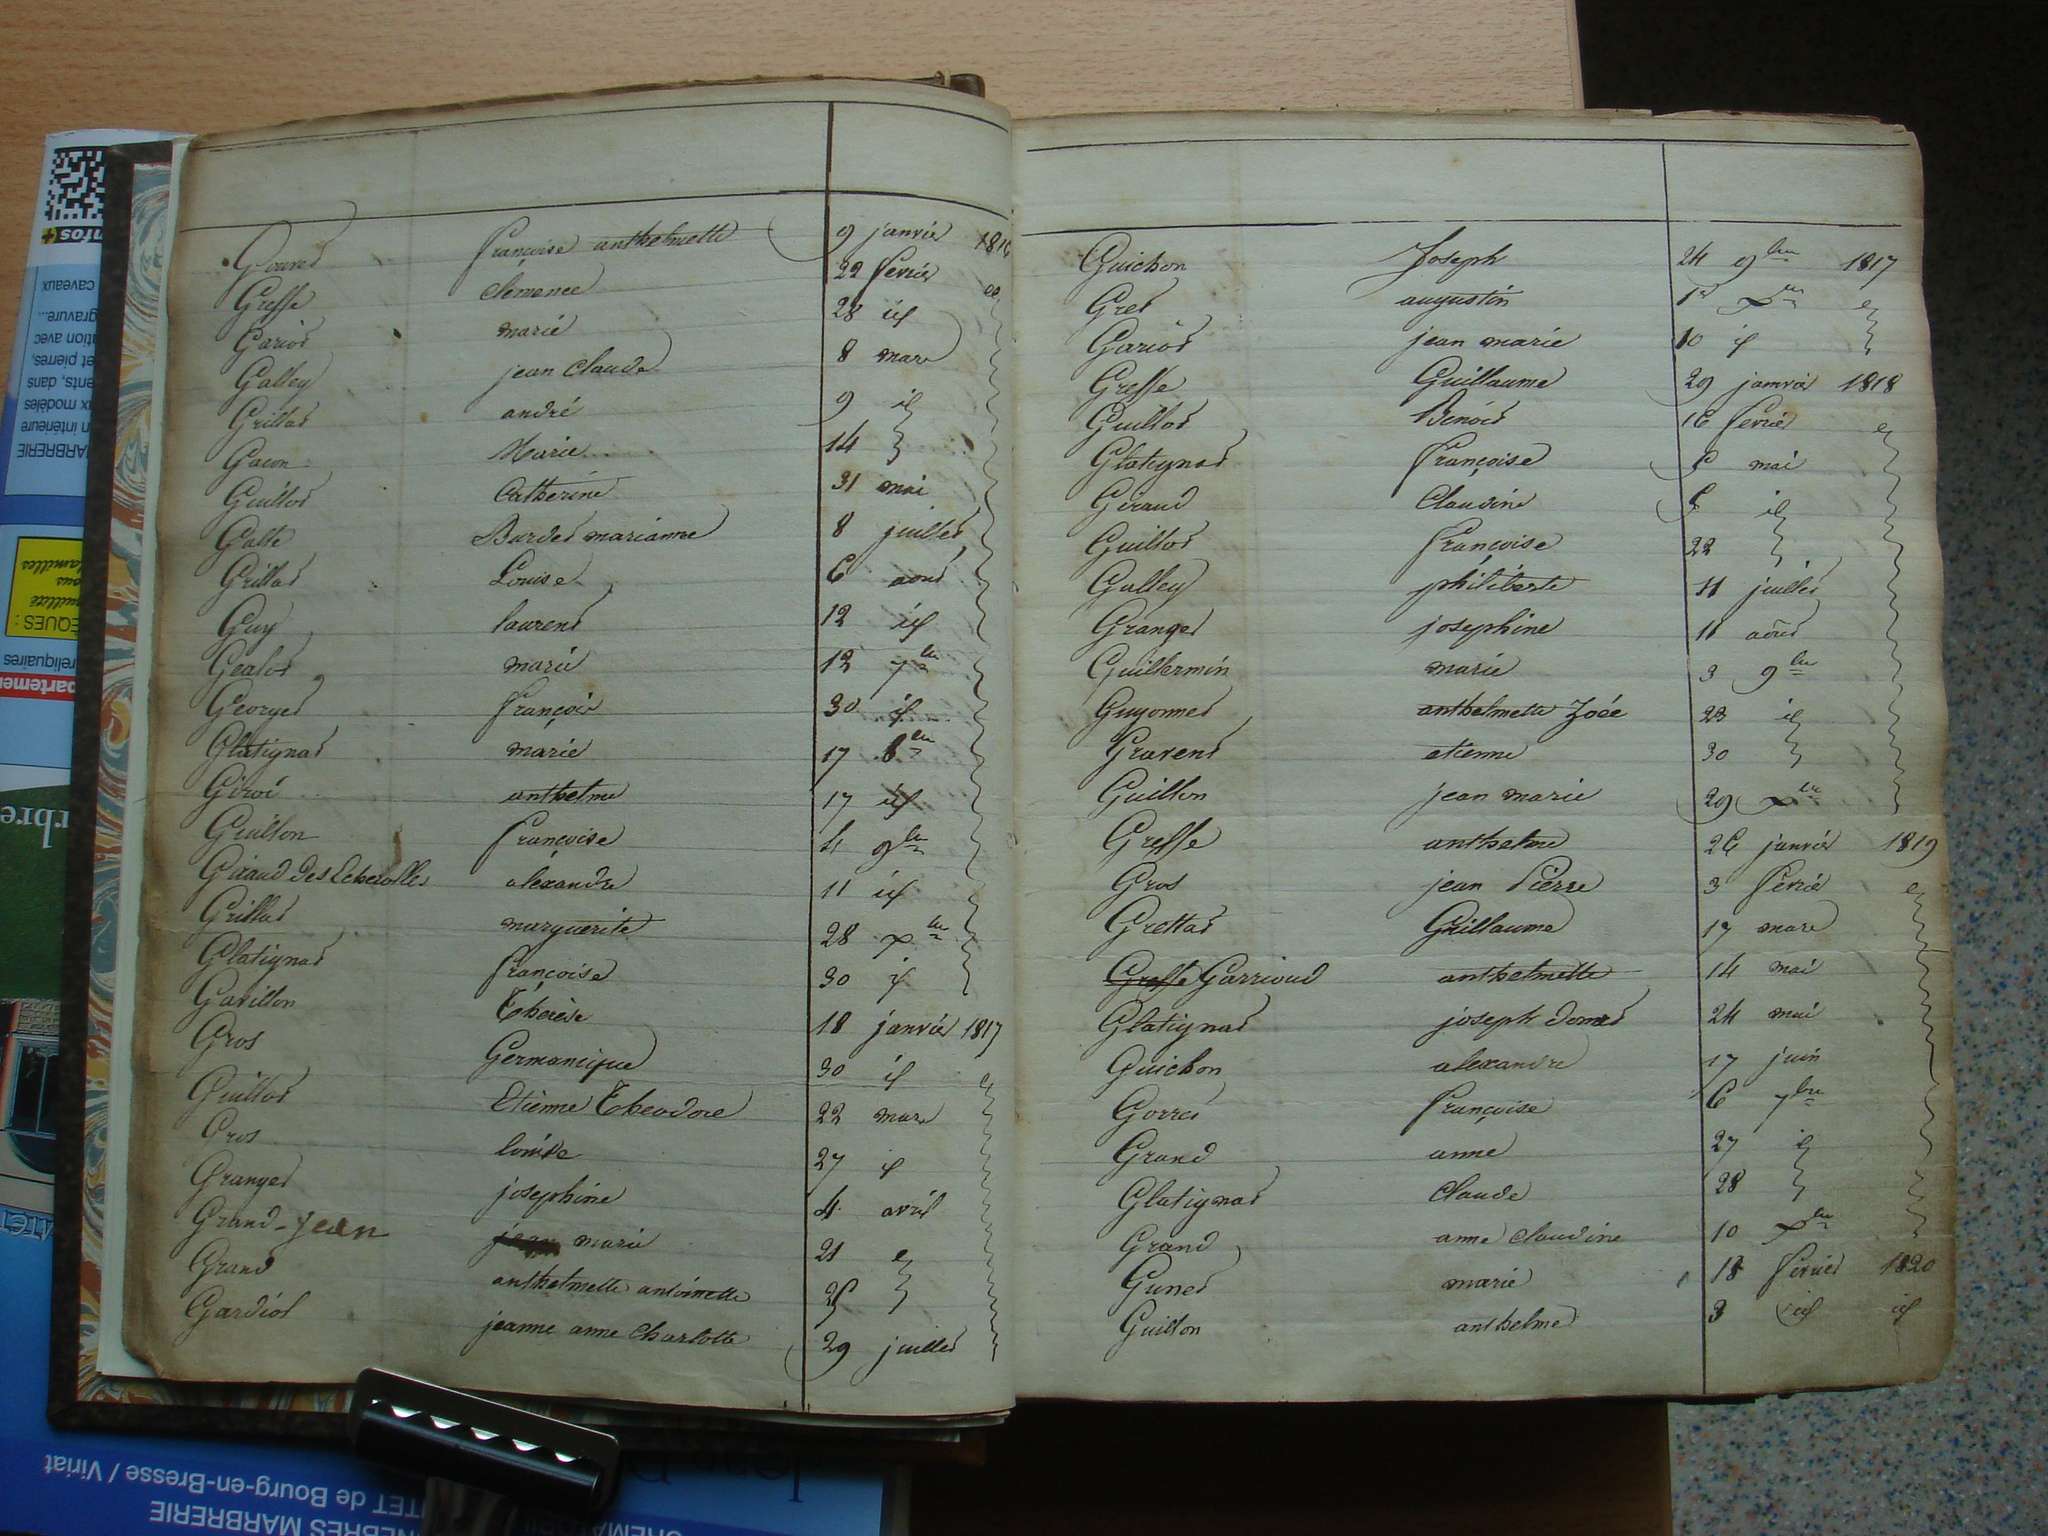 Gouret françoise anthelmette 9 janvier 1816
Greffe clemence 22 fevrier
Gariod marie 28 id
Galley jean claude 8 mars
Grillat andré 9 id
Gacon Marie 14
Guillot Catherine 31 mai
Galte Burdet marianne 8 juillet
Grillat Louise 6 aout
Guy laurent 12 id
Gealot marie 12 7bre
Georget françois 30 id
Glatignat marie 17 8bre
Giroi anthelme 17 id
Guillon françoise 4 9bre
Giraud des Echerolles alexandre 11 id
Grillat marguerite 28 xbre
Glatignat françoise 30 id
Gavillon Thérèse 18 janvier 1817
Gros Germanique 30 id
Guillot Etienne Theodore 22 mars
Gros louise 27 id
Granget josephine 4 avril
Grand-jean marie 21
Grand anthelmette antoinette 25
Gardiol jeanne anne charlotte 29 juillet
Guichon Joseph 24 9bre 1817
Gret augustin 1er xbre
Gariod jean marie 10 id
Greffe Guillaume 29 janvier 1818
Guillot Benoit 16 fevrier
Glatignat françoise 5 mai
Giraud Claudine 5 id
Guillot françoise 22
Galley philiberte 11 juillet
Granget josephine 11 aout
Guillermin marie 3 9bre
Guyonnet anthelmette Zoée 23 id
Gravent etienne 30
Guillon jean marie 29 xbre
Greffe anthelme 26 janvier 1819
Gros jean Pierre 3 fevrier
Grettat Guillaume 17 mars
Greffe Garrioud anthelmette 14 mai
Glatignat joseph donat 24 mai
Guichon alexandre 17 juin
Gorret françoise 6 7bre
Grand anne 27 id
Glatignat claude 28
Grand anne claudine 10 xbre
Gunet marie 18 fevrier 1820
Guillon anthelme 3 id id